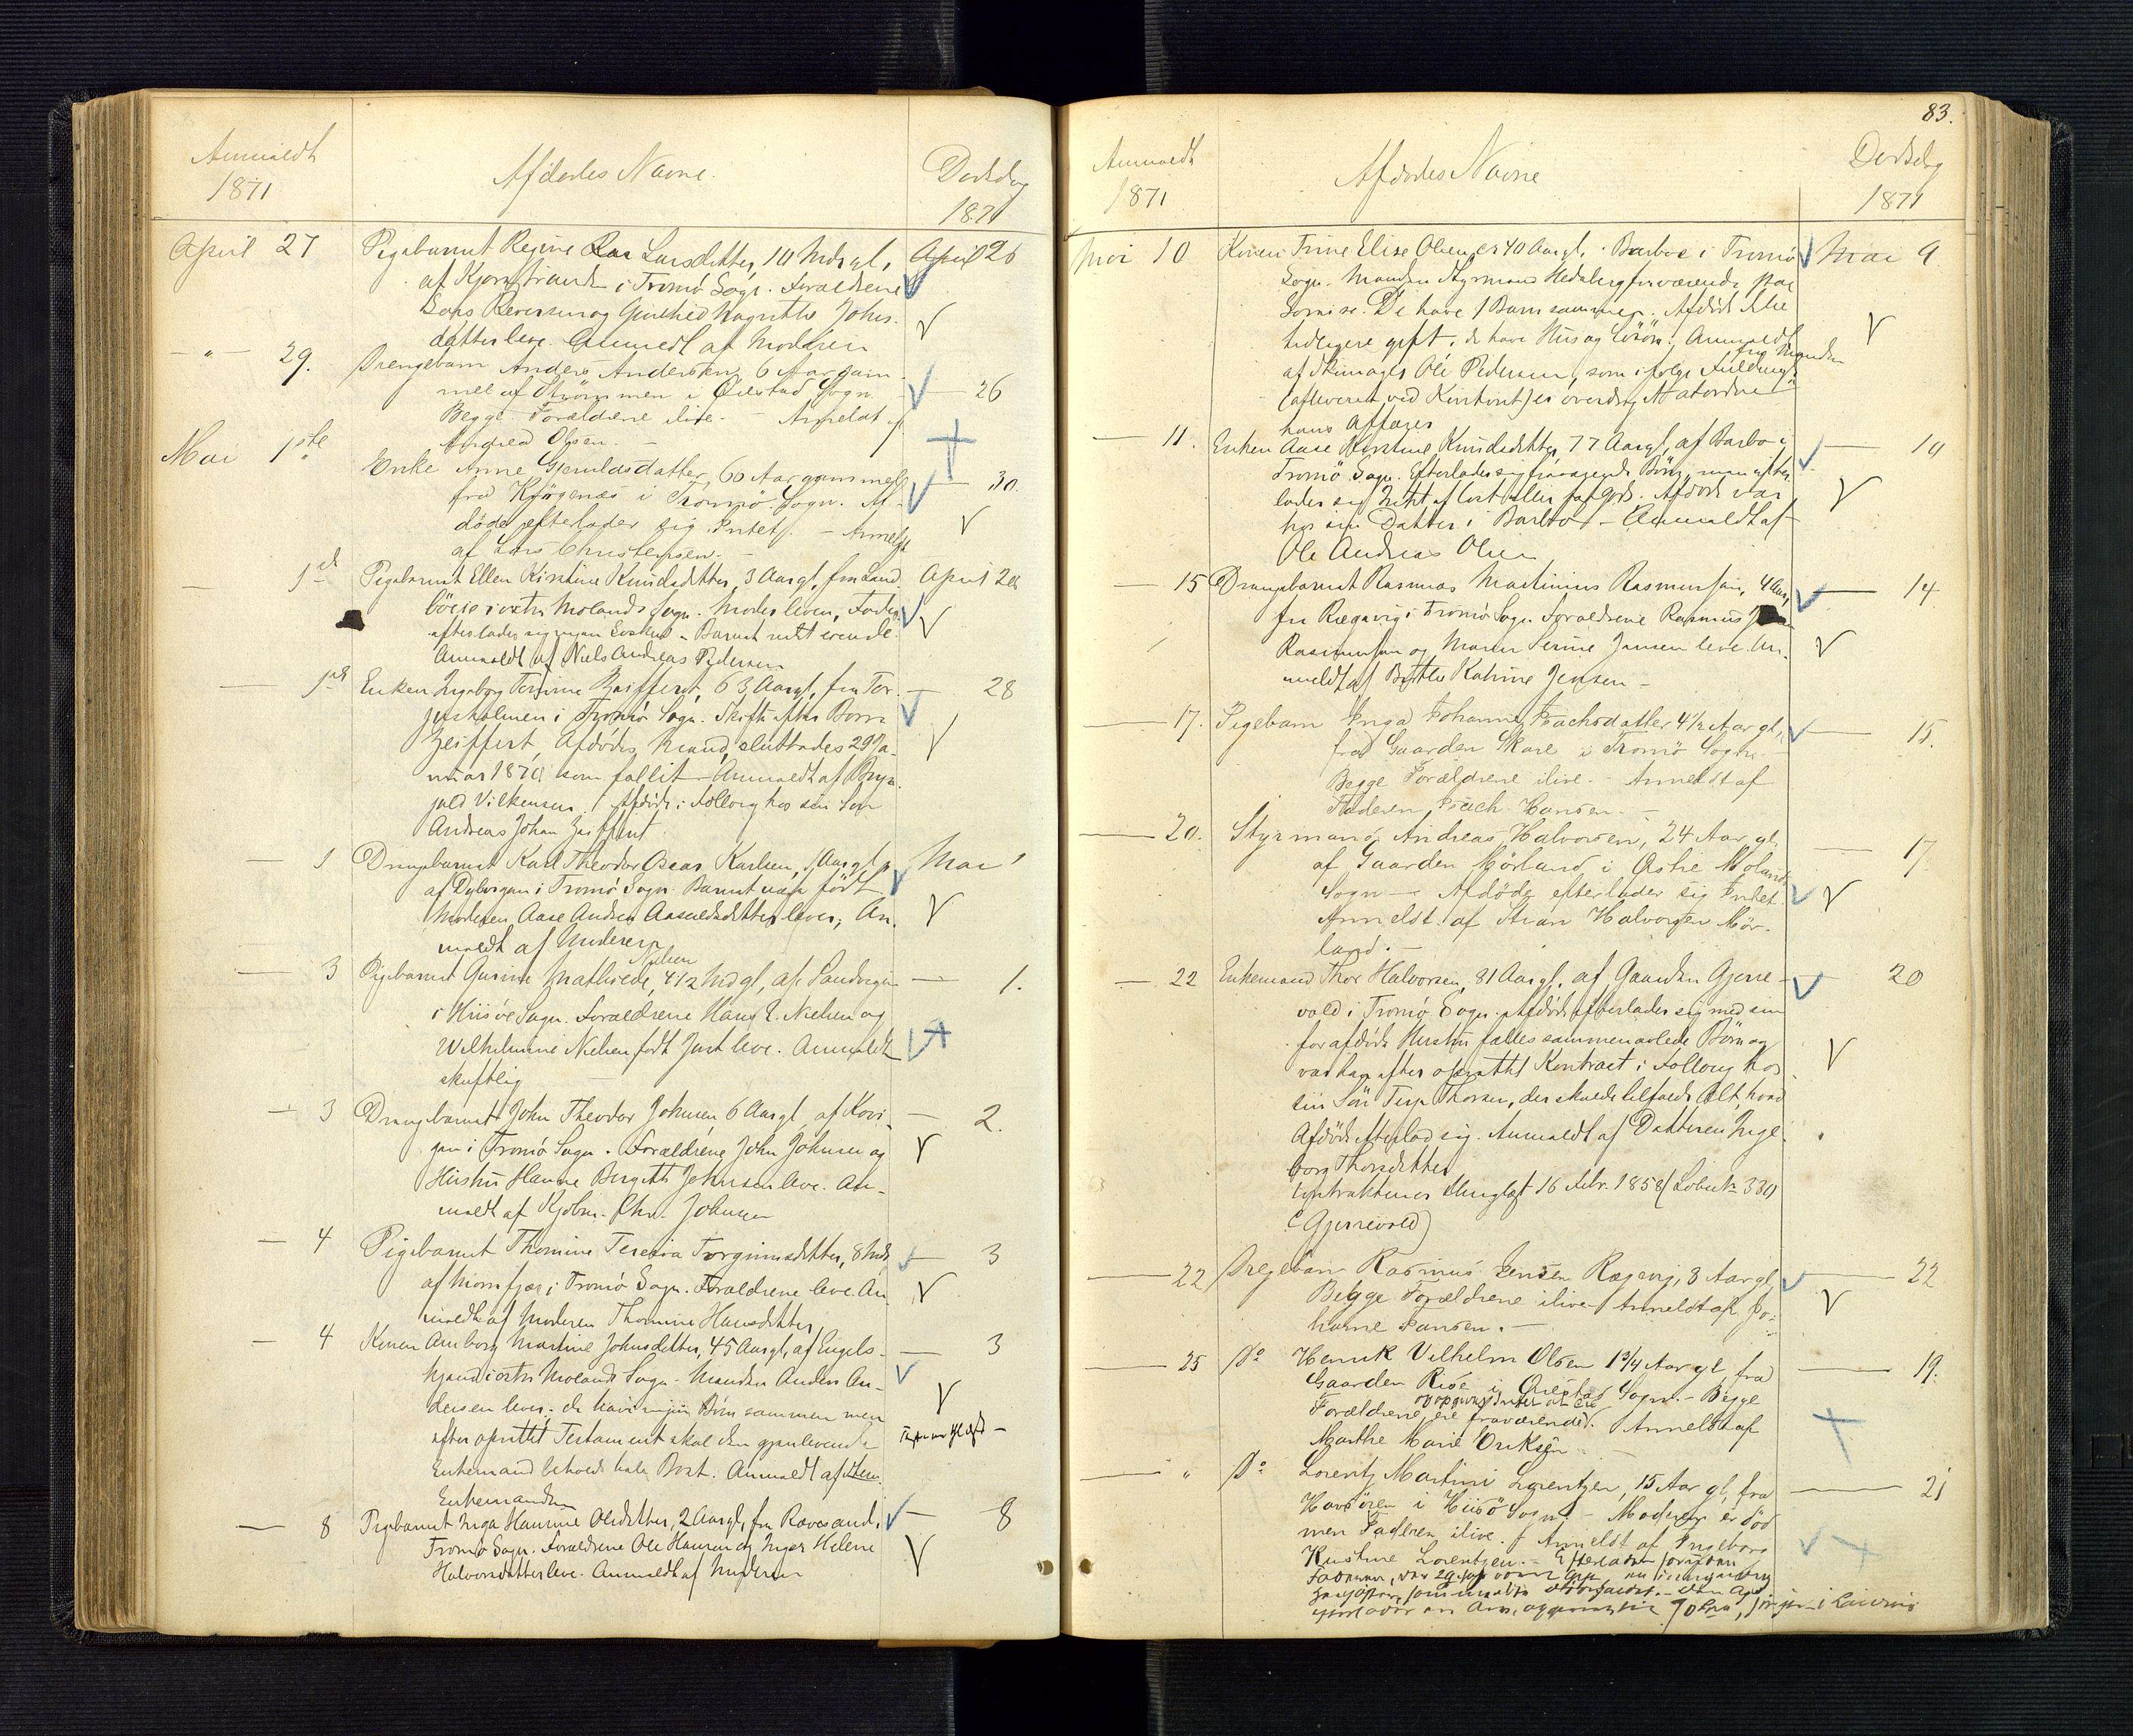 Anmeldt
1871
Afdødes Navne.
Dødsdag
1871
April 27 Pigebarnet Regine Larsdatter, 10 Mdr gl, April 26
af Kjornstranden i Tromø Sogn. Forældrene
Lars Reiersen og Gunhild Magrethe Johns-
datter leve. Anmeldt af Moderen
— " — 29. Drengebarn Anders Andersen 6 Aar gam-
mel af Strømmen i Øiestad Sogn — 26
Begge Forældrene ilive. — Anmeldt af
Andrea Olsen. —
Mai 1ste Enke Anne Gjeruldsdatter, 60 Aar gammel — 30.
fra Kjørgenæs i Tromø Sogn. Af-
døde efterlader sig Intet. — Anmeldt
af Lars Christensen. —
— 1st Pigebarnet Ellen Kirstine Knudsdatter, 3 Aar gl, fra Land- April 28
böeie i østre Molands Sogn. Moder leven, Fader
efterlader sig ingen — Barnet intet eiende.
Anmeldt af Niels Andreas Pedersen
— 1ste Enken Ingeborg Terjine Zeiffert, 63 Aar gl, fra Tor- — 28
jusholmen i Tromø Sogn. Skifte efter Børre
Zeiffert, Afdødes Mand, sluttedes 29 Ja-
nuar 1870 som fallit — Anmeldt af Bryn-
juld Vilkensen. Afdøde i Follaug hos sin Søn
Andreas Johan Zeiffert.
— 1 Drengebarnet Karl Theodor Oscar Karlsen, 1 Aar gl, Mai 1
af Dybvigen i Tromø Sogn. Barnet uægte født
Moderen Aase Andrea Aanedsdatter lever, An-
meldt af Moderen
Nielsen
— 3 Pigebarnet Gusine Mathilde, 4 1/2 Mdr gl, af Sandvigen — 1.
i Hiisøe Sogn. Forældrene Hans E. Nielsen og
Wilhelmine Nielsen født Just leve. Anmeldt
skriftlig
— 3 Drengebarnet John Theodor Johnsen 6 Aar gl, af Kovi- — 2.
gen i Tromø Sogn. Forældrene John Johnsen og
Hustru Hanne Birgitte Johnsen leve. An-
meldt af Kjøbm. Chr. Johnsen
— 4 Pigebarnet Thomine Teresia Torgrimsdatter, 8 Mdr — 3
af Mornfjær i Tromø Sogn. Forældrene leve. An-
meldt af Moderen Thomine Hansdatter
— 4 Konen Anborg Martine Johnsdatter, 45 Aar gl, af Engels- — 3
hjænd i østre Molands Sogn. Manden Anders An-
dersen lever; de have ingen Børn sammen men
efter oprettet Testament skal den gjenlevende
Enkemand beholde hele Boet. Anmeldt af
Enkemanden
— 8 Pigebarnet Inga Haurine Olsdatter, 2 Aar gl, fra Rævesand, — 8
Tromø Sogn. Forældrene Ole Hansen og Inger Helene
Halvorsdatter leve. Anmeldt af Moderen
83.
Anmeldt
1871
Afdødes Navne
Dødsdag
1871
Mai 10 Konen Trine Elise Olsen, er 40 Aar gl, Barboe i Tromø Mai 9
Sogn. Manden Styrmand Hedeberg fraværende paa
Seireise. De have 1 Barn sammen. Afdøde ikke
tidligere gift, de have Hus og Løsøre. Anmeldt
af Skimager Ole Pedersen, som i følge Fuldmagt fra Manden
(afleveret ved Kontoret) er overdraget at ordne
hans Affærer
— 11. Enken Aase Kirstine Knudsdatter, 77 Aar gl, af Barbo i — 10
Tromø Sogn. Efterlader sig fraværende Børn, men efter-
lader sig Intet af Løst eller fast Gods. Afdøde var
hos sin Datter i Barbo — Anmeldt af
Ole Andreas Olsen
— 15 Drengebarnet Rasmus Martinius Rasmussen, 4 Aar, — 14
fra Rægevig i Tromø Sogn. Forældrene Rasmus
Rasmussen og Maren Serine Jensen leve. An-
meldt af Birthe Katrine Jensen —
— 17. Pigebarn Inga Johanne Isachsdatter 4 1/2 Aar gl, — 15.
fra Gaarden Skare i Tromø Sogn. —
Begge Forældrene ilive. — Anmeldt af
Faderen Isach Hansen. —
— 20. Styrmand Andreas Halvorsen, 24 Aar gl, — 17.
af Gaarden Mørland i Østre Moland
Sogn — Afdøde efterlader sig Intet.
Anmeldt af Stian Halvorsen Mør-
land. —
— 22 Enkemand Thor Halvorsen, 81 Aar gl. af Gaarden Gjerre- — 20
vold i Tromø Sogn. Afdøde efterlader sig med sin
forafdøde Hustru fælles sammenavlede Børn og
var han efter oprettet Kontract i Follaug hos
sin Søn Terje Thorsen, der skulde tilfalde Alt, hvad
Afdøde efterlod sig. Anmeldt af Datteren Inge-
borg Thorsdatter
Contrakten er thinglæst 16 Febr. 1858 (Løbe No 330
c Gjerrevold)
— 22 Dregebarn Rasmus Jensen Rægevig, 3 Aar gl, — 22
Begge Forældrene ilive — Anmeldt af Jo-
hanne Jansen. —
— 25 Do Henrik Vilhelm Olsen 1 3/4 Aar gl, fra — 19.
Gaarden Rise i Øiestad Sogn. — Begge
Forældrene ere fraværende. Anmeldt af
Marthe Marie Eriksen
— " Do Lorentz Martini Lorentzen, 15 Aar gl, fra — 21
Havsøen i Hiisø Sogn. — Moderen er død
men Faderen ilive. Anmeldt af Ingeborg
Kirstine Lorentzen. —